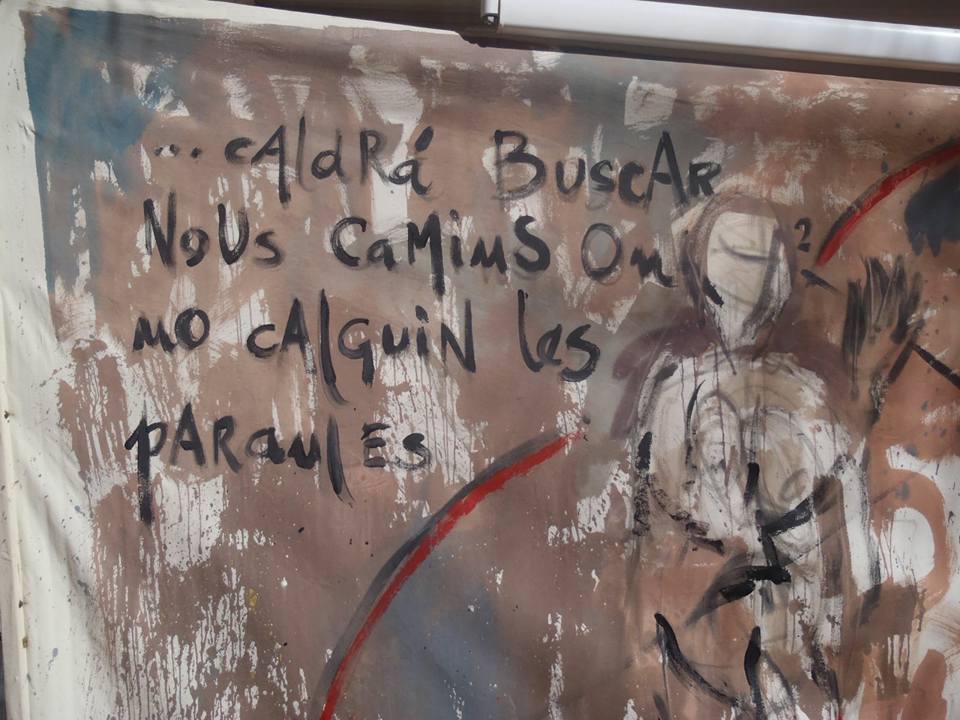 ... cAldRá BuscAR
NoUs CaMins On
no cAlguiN les
pARaulEs